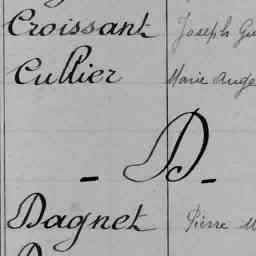 Croissant Joseph Gu
Cullier Marie Ange
- D -
Dagnet Pierre M